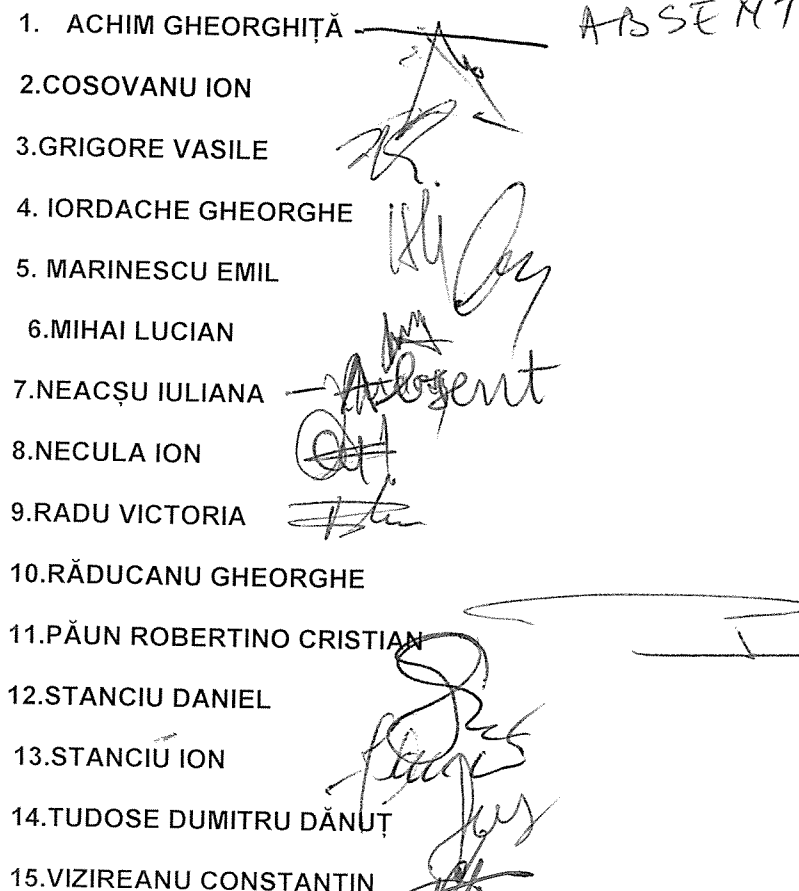 1. ACHIM GHEORGHIȚĂ — ABSENT
2.COSOVANU ION
3.GRIGORE VASILE
4. IORDACHE GHEORGHE
5. MARINESCU EMIL
6.MIHAI LUCIAN
7.NEACȘU IULIANA — Absent
8.NECULA ION
9.RADU VICTORIA
10.RĂDUCANU GHEORGHE
11.PĂUN ROBERTINO CRISTIAN
12.STANCIU DANIEL
13.STANCIU ION
14.TUDOSE DUMITRU DĂNUȚ
15.VIZIREANU CONSTANTIN